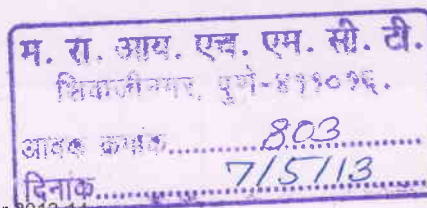 म. रा. आय. एच. एम. सी. टी.
शिवाजीनगर, पुणे-४११०१६.
आवक क्रमांक.......803
दिनांक.......7/5/13